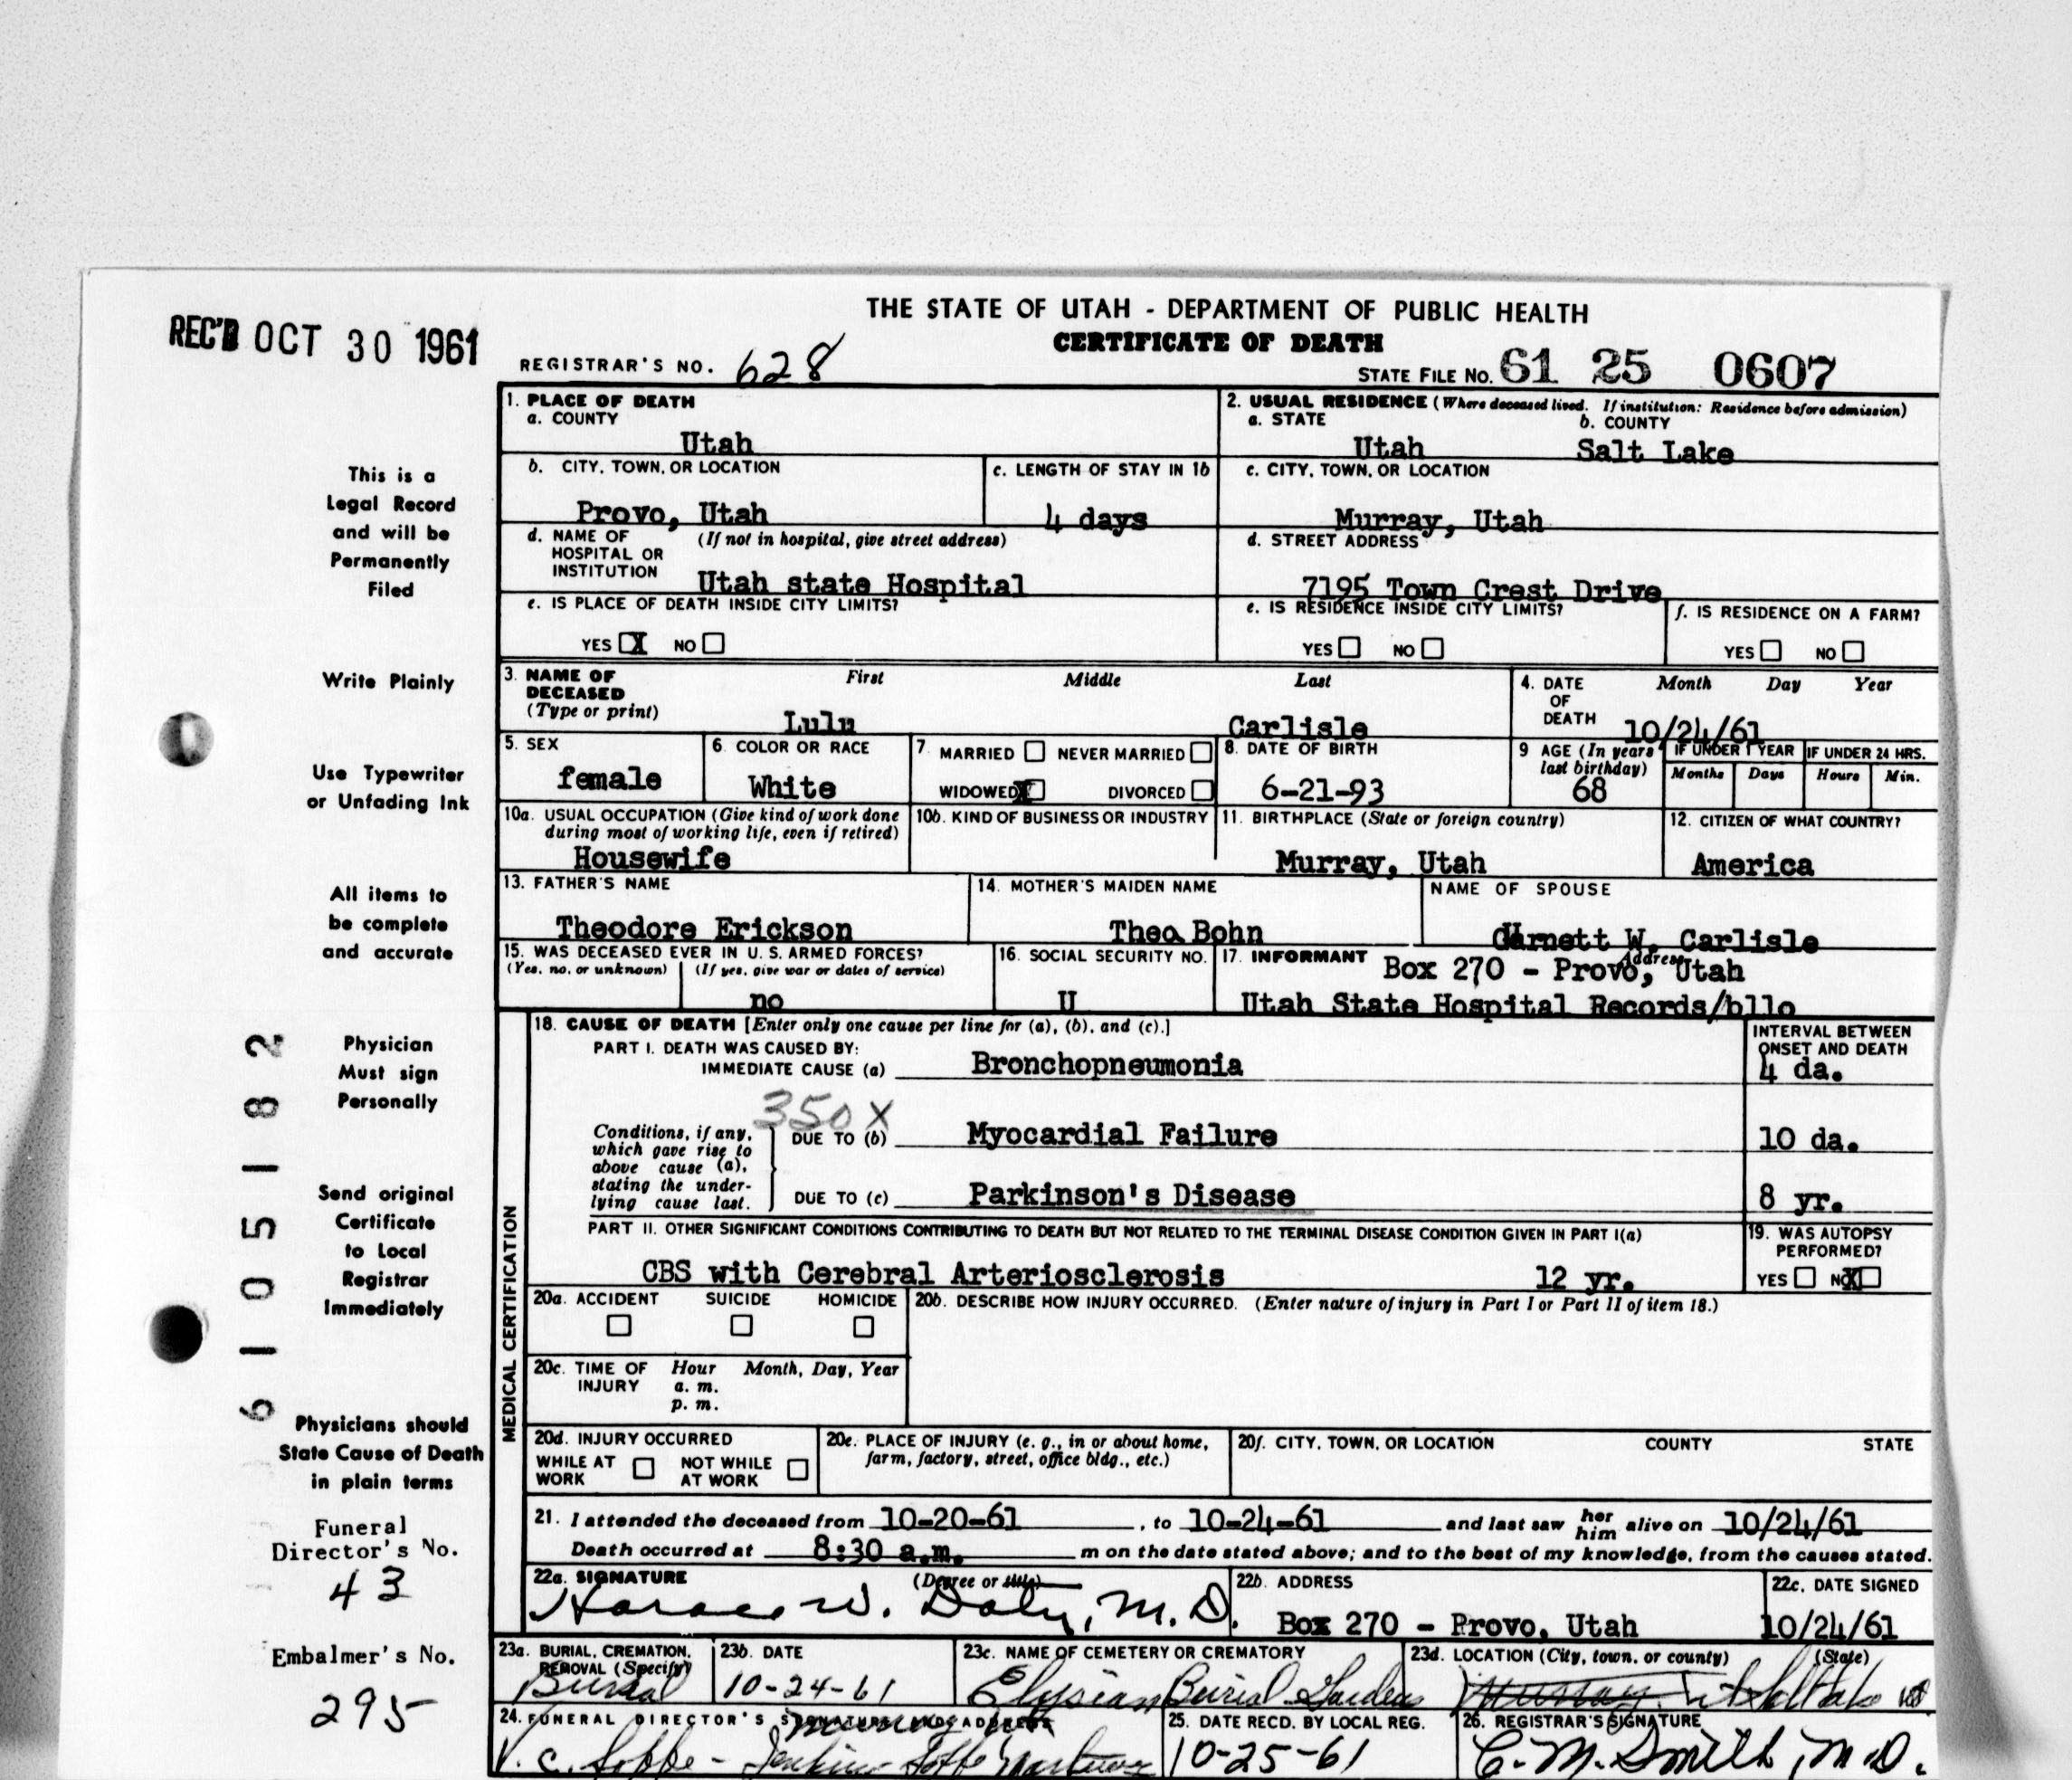 THE STATE OF UTAH - DEPARTMENT OF PUBLIC HEALTH
REC'D OCT 30 1961
CERTIFICATE OF DEATH
REGISTRAR'S NO. 628
STATE FILE No. 61 25 0607
1. PLACE OF DEATH
a. COUNTY
Utah
2. USUAL RESIDENCE (Where deceased lived. If institution: Residence before admission)
a. STATE b. COUNTY
Utah Salt Lake
b. CITY, TOWN, OR LOCATION
Provo, Utah
c. LENGTH OF STAY IN 1b
4 days
c. CITY, TOWN, OR LOCATION
Murray, Utah
d. NAME OF HOSPITAL OR INSTITUTION (If not in hospital, give street address)
Utah state Hospital
d. STREET ADDRESS
7195 Town Crest Drive
e. IS PLACE OF DEATH INSIDE CITY LIMITS?
YES X NO
e. IS RESIDENCE INSIDE CITY LIMITS?
YES NO
f. IS RESIDENCE ON A FARM?
YES NO
3. NAME OF DECEASED (Type or print)
First Middle Last
Lulu Carlisle
4. DATE OF DEATH
Month Day Year
10/24/61
5. SEX
female
6. COLOR OR RACE
White
7. MARRIED NEVER MARRIED
WIDOWED X DIVORCED
8. DATE OF BIRTH
6-21-93
9 AGE (In years last birthday)
68
IF UNDER 1 YEAR
Months Days
IF UNDER 24 HRS.
Hours Min.
10a. USUAL OCCUPATION (Give kind of work done during most of working life, even if retired)
Housewife
10b. KIND OF BUSINESS OR INDUSTRY
11. BIRTHPLACE (State or foreign country)
Murray, Utah
12. CITIZEN OF WHAT COUNTRY?
America
13. FATHER'S NAME
Theodore Erickson
14. MOTHER'S MAIDEN NAME
Thea Bohn
NAME OF SPOUSE
Garnett W. Carlisle
15. WAS DECEASED EVER IN U. S. ARMED FORCES?
(Yes, no, or unknown) (If yes, give war or dates of service)
no
16. SOCIAL SECURITY NO.
U
17. INFORMANT Address
Box 270 - Provo, Utah
Utah State Hospital Records/bllo
MEDICAL CERTIFICATION
18. CAUSE OF DEATH [Enter only one cause per line for (a), (b), and (c).]
INTERVAL BETWEEN ONSET AND DEATH
PART I. DEATH WAS CAUSED BY:
IMMEDIATE CAUSE (a) Bronchopneumonia 4 da.
350 X
Conditions, if any, which gave rise to above cause (a), stating the underlying cause last.
DUE TO (b) Myocardial Failure 10 da.
DUE TO (c) Parkinson's Disease 8 yr.
PART II. OTHER SIGNIFICANT CONDITIONS CONTRIBUTING TO DEATH BUT NOT RELATED TO THE TERMINAL DISEASE CONDITION GIVEN IN PART I(a)
CBS with Cerebral Arteriosclerosis 12 yr.
19. WAS AUTOPSY PERFORMED?
YES NO X
20a. ACCIDENT SUICIDE HOMICIDE
20b. DESCRIBE HOW INJURY OCCURRED. (Enter nature of injury in Part I or Part II of item 18.)
20c. TIME OF INJURY Hour Month, Day, Year
a. m.
p. m.
20d. INJURY OCCURRED
WHILE AT WORK NOT WHILE AT WORK
20e. PLACE OF INJURY (e. g., in or about home, farm, factory, street, office bldg., etc.)
20f. CITY, TOWN, OR LOCATION COUNTY STATE
21. I attended the deceased from 10-20-61, to 10-24-61 and last saw her him alive on 10/24/61
Death occurred at 8:30 a.m. m on the date stated above; and to the best of my knowledge, from the causes stated.
22a. SIGNATURE (Degree or title)
Horace W. Daly, M.D.
22b. ADDRESS
Box 270 - Provo, Utah
22c. DATE SIGNED
10/24/61
23a. BURIAL, CREMATION, REMOVAL (Specify)
Burial
23b. DATE
10-24-61
23c. NAME OF CEMETERY OR CREMATORY
Elysian Burial Gardens
23d. LOCATION (City, town, or county) (State)
Murray Salt Lake Ut
24. FUNERAL DIRECTOR'S SIGNATURE AND ADDRESS
Murray
V. C. Soffe - Jenkins Soffe Mortuary
25. DATE RECD. BY LOCAL REG.
10-25-61
26. REGISTRAR'S SIGNATURE
C. M. Smith, M.D.
This is a
Legal Record
and will be
Permanently
Filed
Write Plainly
Use Typewriter
or Unfading Ink
All items to
be complete
and accurate
Physician
Must sign
Personally
Send original
Certificate
to Local
Registrar
Immediately
Physicians should
State Cause of Death
in plain terms
Funeral
Director's No.
43
Embalmer's No.
295
6105182